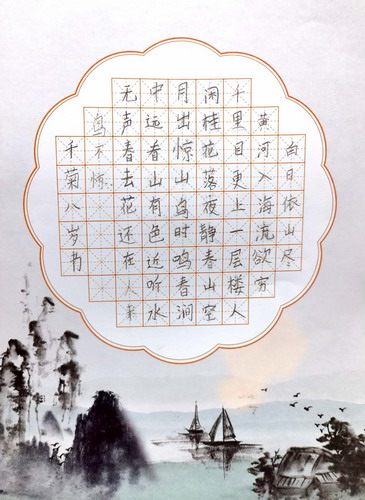 白日依山尽
黄河入海流欲穷
千里目更上一层楼人
闲桂花落夜静春山空
月出惊山鸟时鸣春涧
中远看山有色近听水
无声春去花还在人来
鸟不惊
千菊八岁书